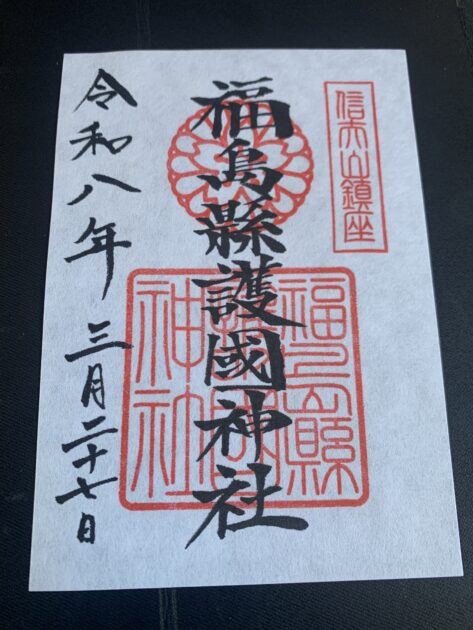 信夫山鎮座
福島縣護國神社
福島縣
護國
神社
令和八年三月二十七日